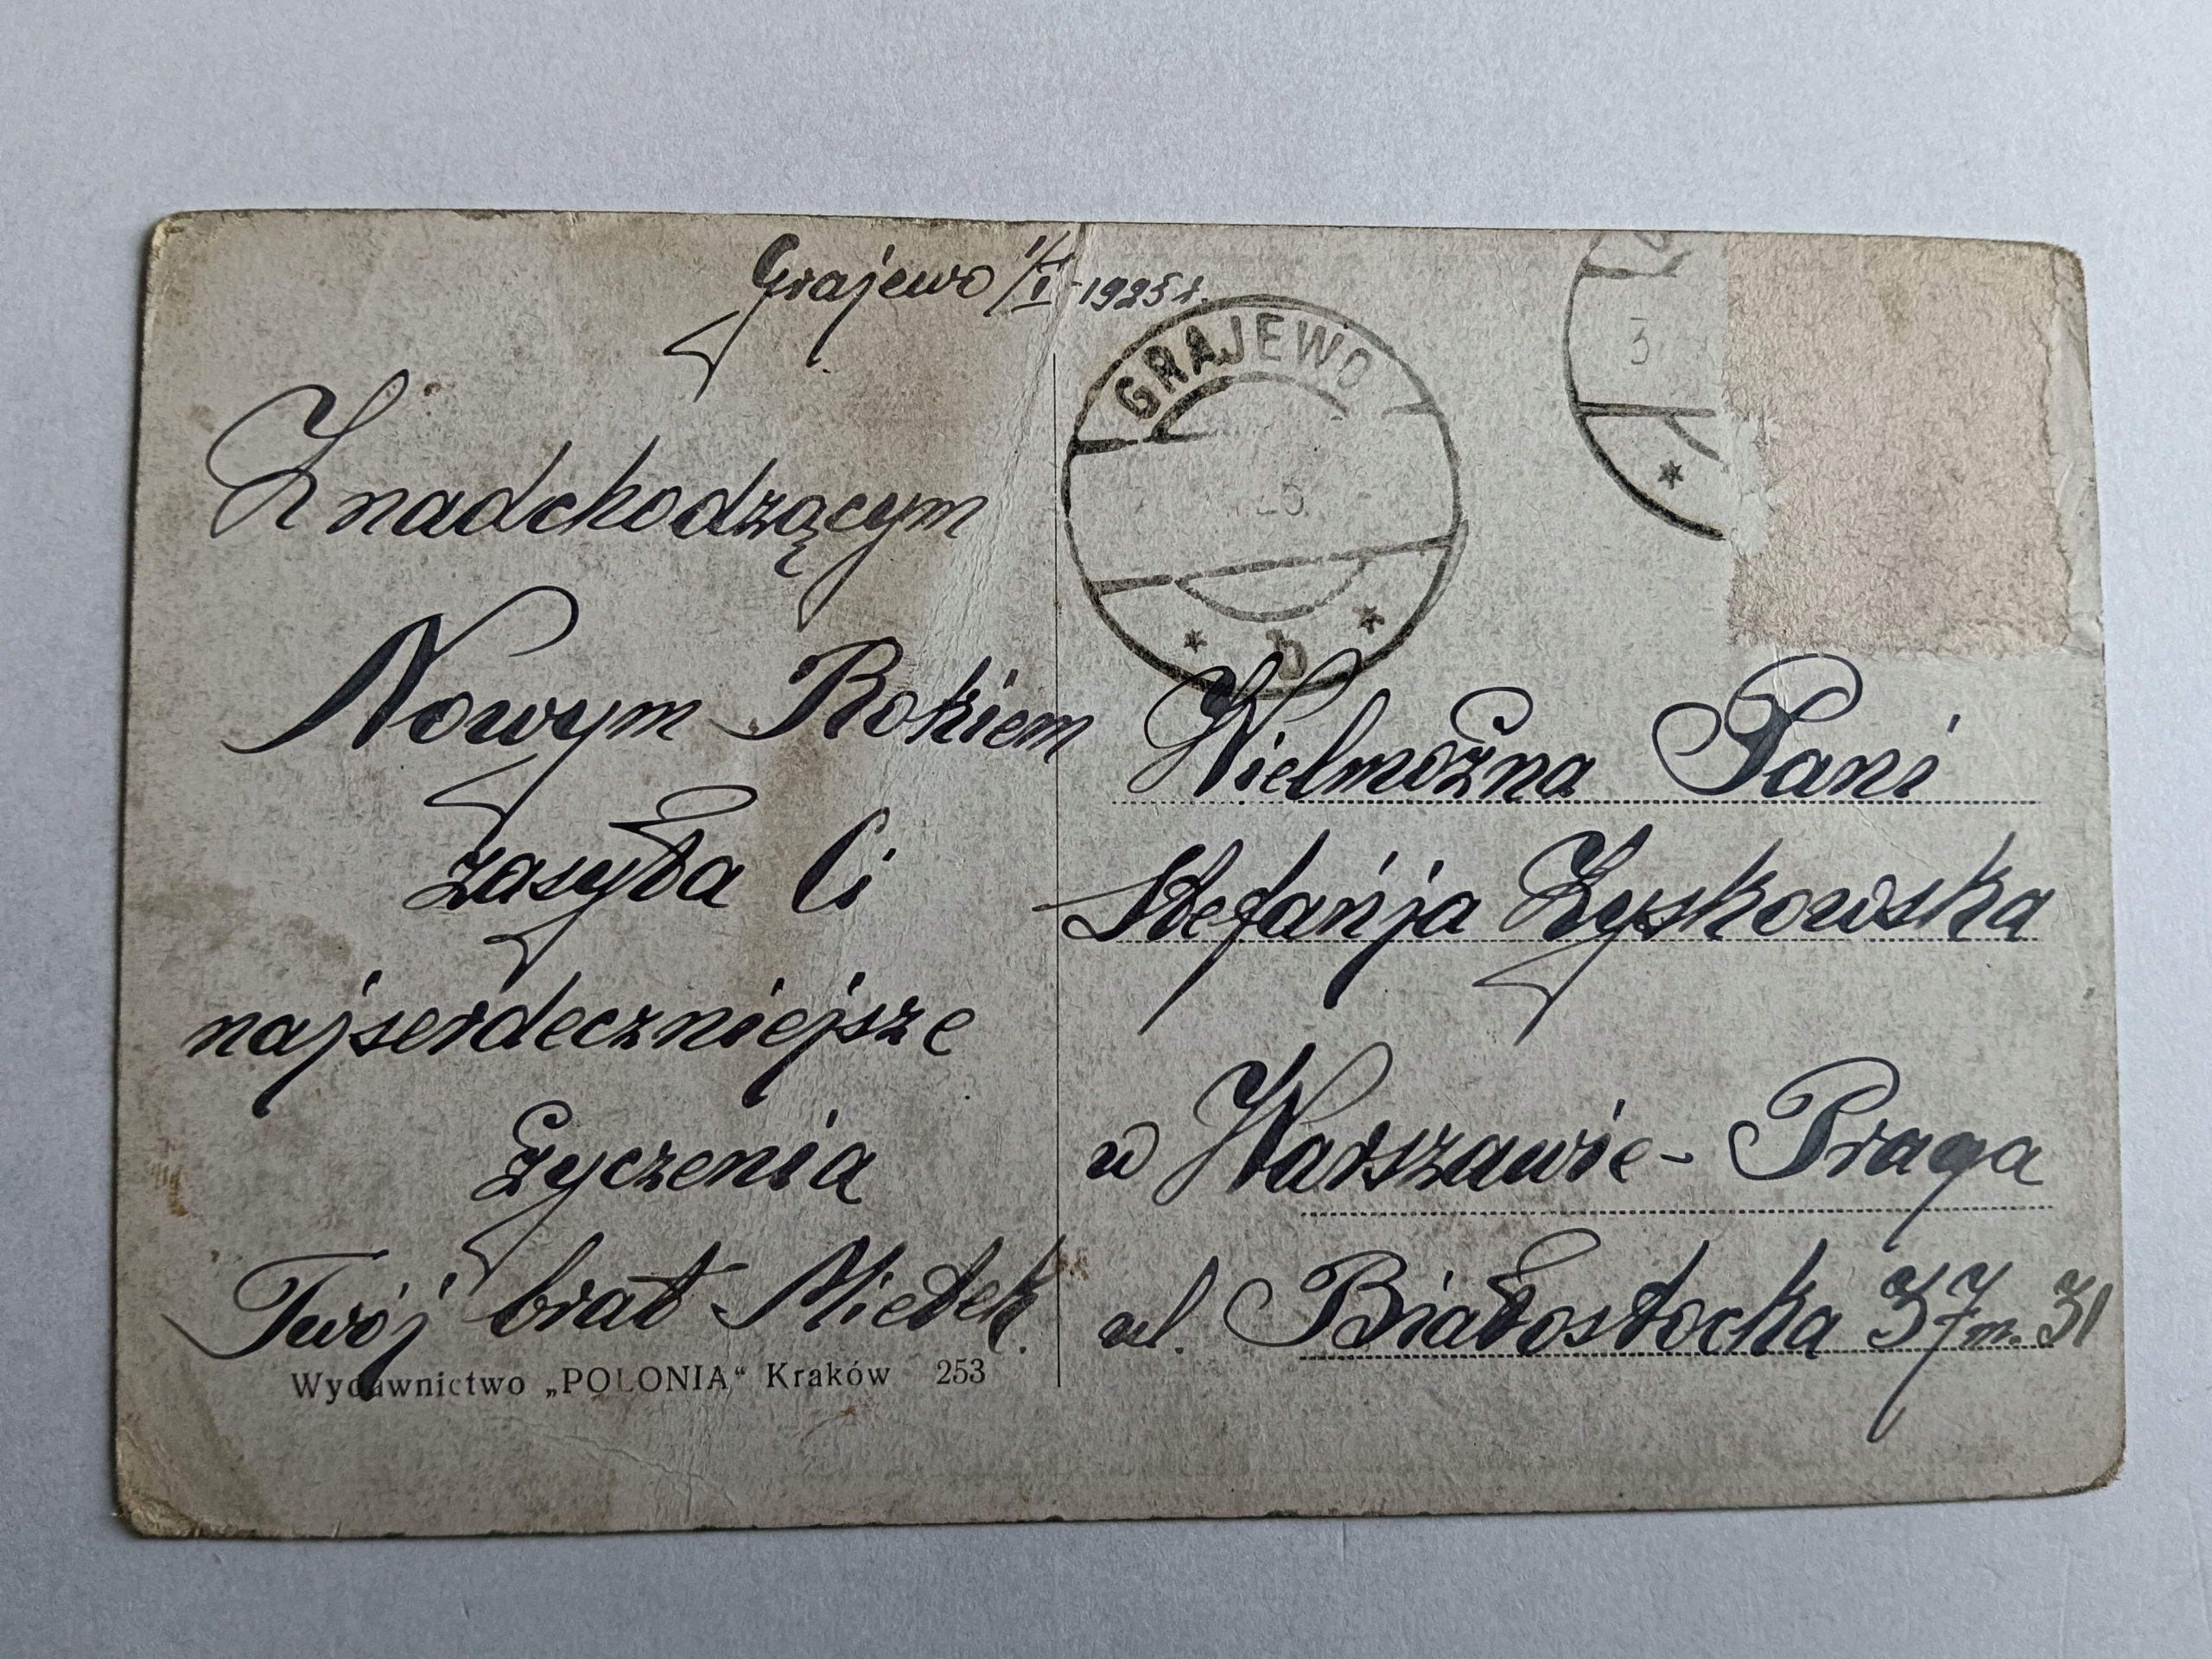 Grajewo 1/I-1925 r.
Z nadchodzącym
Nowym Rokiem
zasyła Ci
najserdeczniejsze
życzenia
Twój brat Mietek.
Wydawnictwo „POLONIA“ Kraków 253
GRAJEWO
25
* b *
3
*
Wielmożna Pani
Stefanja Zyskowska
w Warszawie - Praga
ul. Białostocka 37 m. 31